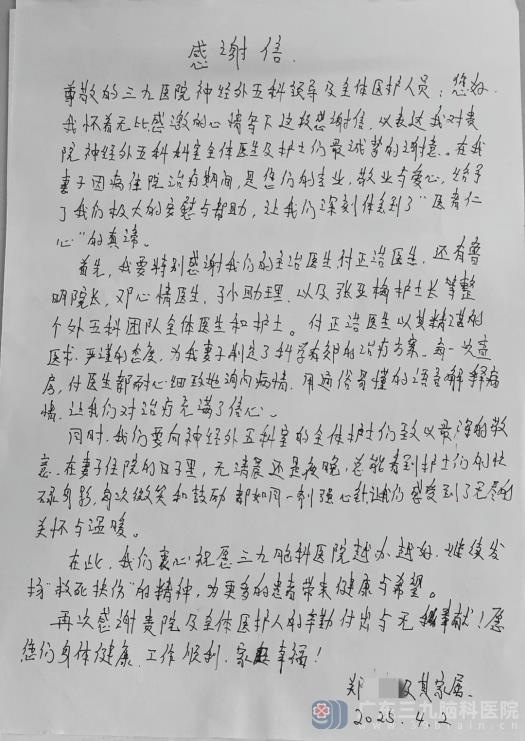 感谢信.
尊敬的三九医院神经外五科领导及全体医护人员:您好
我怀着无比感激的心情写下这封感谢信,以表达我对贵
院神经外五科科室全体医生及护士们最诚挚的谢意。在我
妻子因病住院治疗期间,是您们的专业,敬业与爱心,给予
了我们极大的安慰与帮助,让我们深刻体会到了“医者仁
心”的真谛。
首先,我要特别感谢我们的主治医生付正浩医生,还有鲁
明院长,邓心情医生,于小助理,以及张亚梅护士长等整
个外五科团队全体医生和护士。付正浩医生以其精湛的
医术,严谨的态度,为我妻子制定了科学有效的治疗方案。每一次查
房,付医生都耐心细致地询问病情,用通俗易懂的语言解释病
情,让我们对治疗充满了信心。
同时,我们要向神经外五科室的全体护士们致以最崇高的敬
意,在妻子住院的日子里,无论清晨还是夜晚,总能看到护士们的忙
碌身影,每次微笑和鼓励都如同一剂强心针,让我们感受到了无尽的
关怀与温暖。
在此,我们衷心祝愿三九脑科医院越办越好,继续发
扬“救死扶伤”的精神,为更多的患者带来健康与希望。
再次感谢贵院及全体医护人的辛勤付出与无 奉献!愿
您们身体健康,工作顺利,家庭幸福!
郑 及其家属.
2025.4.2
广东三九脑科医院